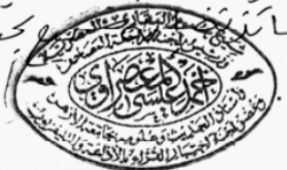 شيخ عموم المقارئ المصرية
ورئيس لجنة مراجعة المصاحف
أحمد عيسى المعصراوي
وأستاذ الحديث وعلومه بجامعة الأزهر
وعضو لجنة اختبار القراء بالإذاعة والتليفزيون